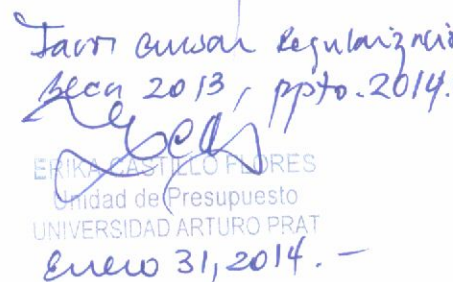 Favor cursar Regularización
Beca 2013, ppto. 2014.
ERIKA CASTILLO FLORES
Unidad de Presupuesto
UNIVERSIDAD ARTURO PRAT
Enero 31, 2014. -